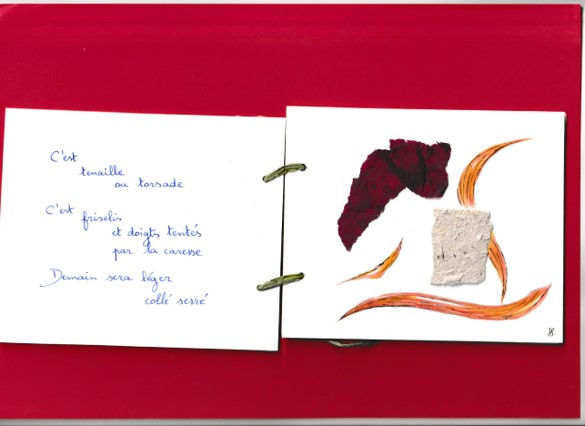 C'est
tenaille
ou torsade
C'est friselis
et doigts tentés
par la caresse
Demain sera léger
collé serré